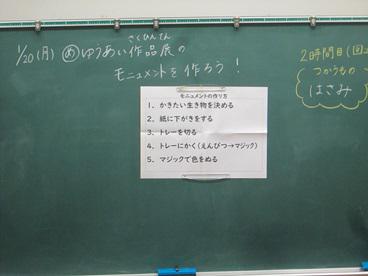 さくひんてん
1/20(月) めゆうあい作品展の
モニュメントを作ろう!
2時間目(図工
つかうもの
はさみ
モニュメントの作り方
1、かきたい生き物を決める
2、紙に下がきをする
3、トレーを切る
4、トレーにかく(えんぴつ→マジック)
5、マジックで色をぬる